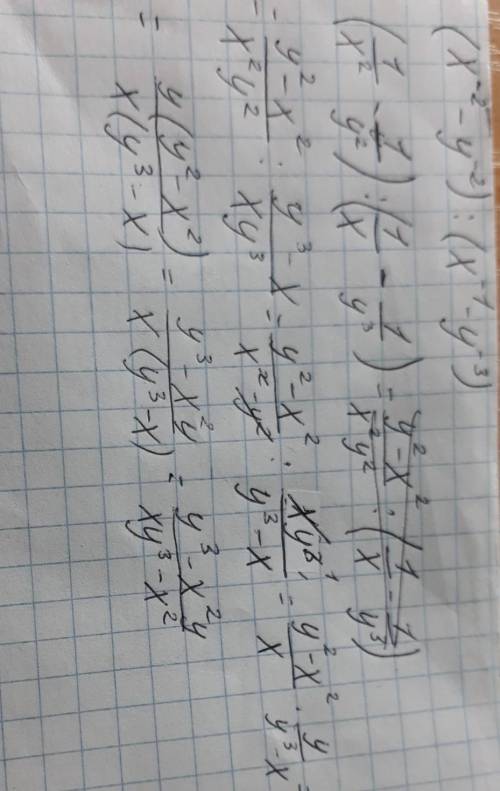 (x⁻² - y⁻²) : (x⁻¹ - y⁻³)
(1/x² - 1/y²) : (1/x - 1/y³) = y² - x²/x²y² : (1/x - 1/y³)
= y² - x²/x²y² : y³ - x/xy³ = y² - x²/x² - y² · xy³/y³ - x = y² - x²/x · y/y³ - x =
= y(y² - x²)/x(y³ - x) = y³ - x²y/x(y³ - x) = y³ - x²y/xy³ - x²